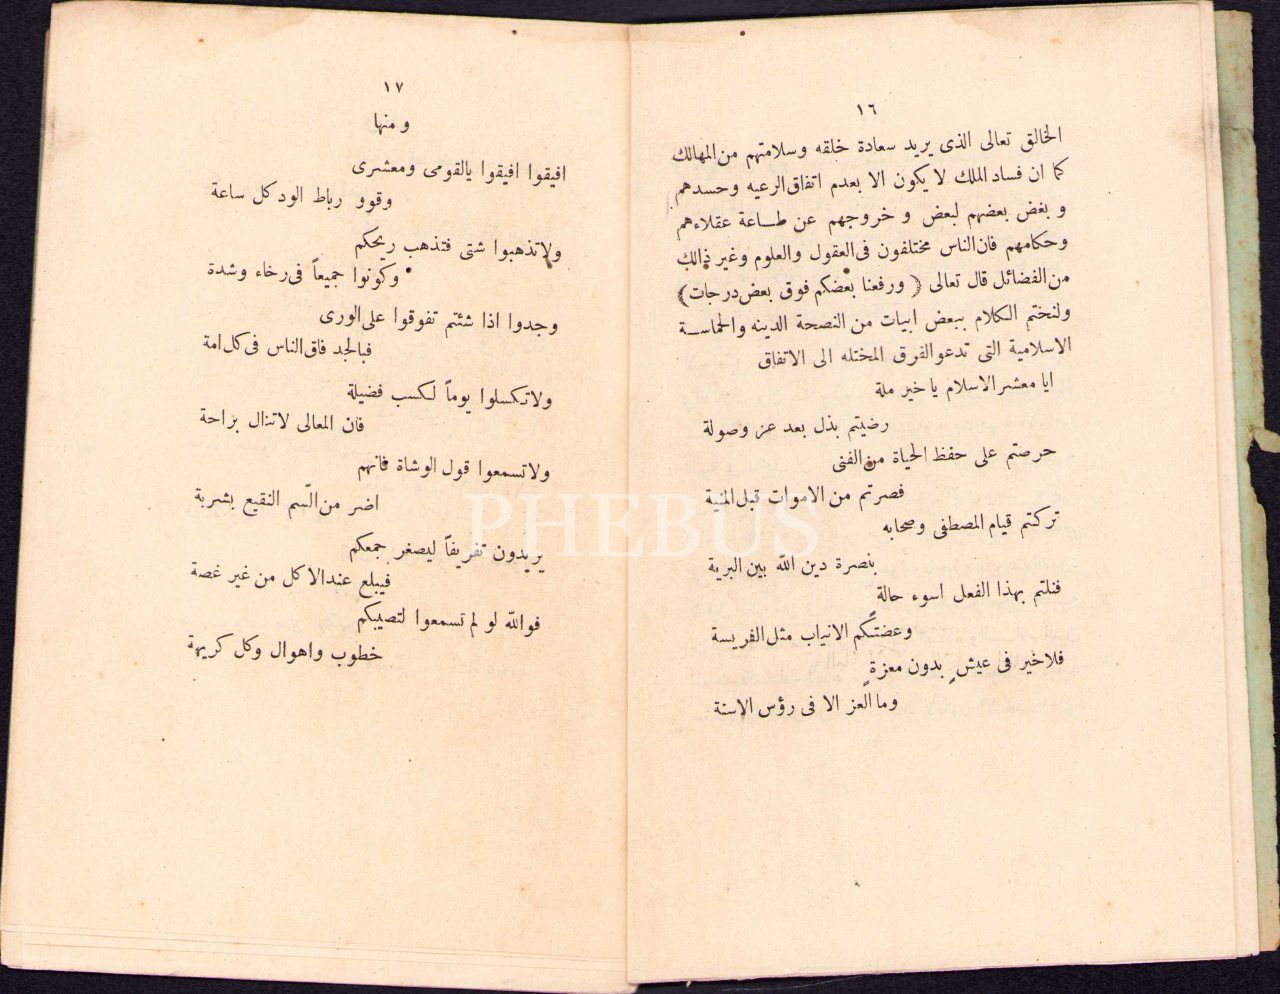 ١٦
الخالق تعالى الذى يريد سعادة خلقه وسلامتهم من المهالك
كما ان فساد الملك لا يكون الا بعدم اتفاق الرعيه وحسدهم
و بغض بعضهم لبعض و خروجهم عن طـاعة عقلاءهم
وحكامهم فان الناس مختلفون فى العقول والعلوم وغير ذالك
من الفضائل قال تعالى ( ورفعنا بعضكم فوق بعض درجات )
ولنختم الكلام ببعض ابيات من النصحة الدينه والحماسـة
الاسلامية التى تدعو الفرق المختله الى الاتفاق
ايا معشر الاسلام يا خير ملة
رضيتم بذل بعد عز وصولة
حرصتم على حفظ الحياة من الفنى
فصرتم من الاموات قبل المنية
تركتم قيام المصطفى وصحابه
بنصرة دين الله بين البرية
فنلتم بهذا الفعل اسوء حالةٍ
وعضتكم الانياب مثل الفريسة
فلا خير فى عيشٍ بدون معزةٍ
وما العز الا فى رؤس الاسنة
١٧
ومنها
افيقوا افيقوا يالقومى ومعشرى
وقوو رباط الود كل ساعة
ولا تذهبوا شتى فتذهب ريحكم
وكونوا جميعاً فى رخاء وشدة
وجدوا اذا شئتم تفوقوا على الورى
فبالجد فاق الناس فى كل امة
ولا تكسلوا يوماً لكسب فضيلة
فان المعالى لا تنال براحة
ولا تسمعوا قول الوشاة فانهم
اضر من السّم النقيع بشربة
يريدون تفريقاً ليصغر جمعكم
فيبلع عند الاكل من غير غصة
فوالله لو لم تسمعوا لتصيبكم
خطوب واهوال وكل كريهة
PHEBUS